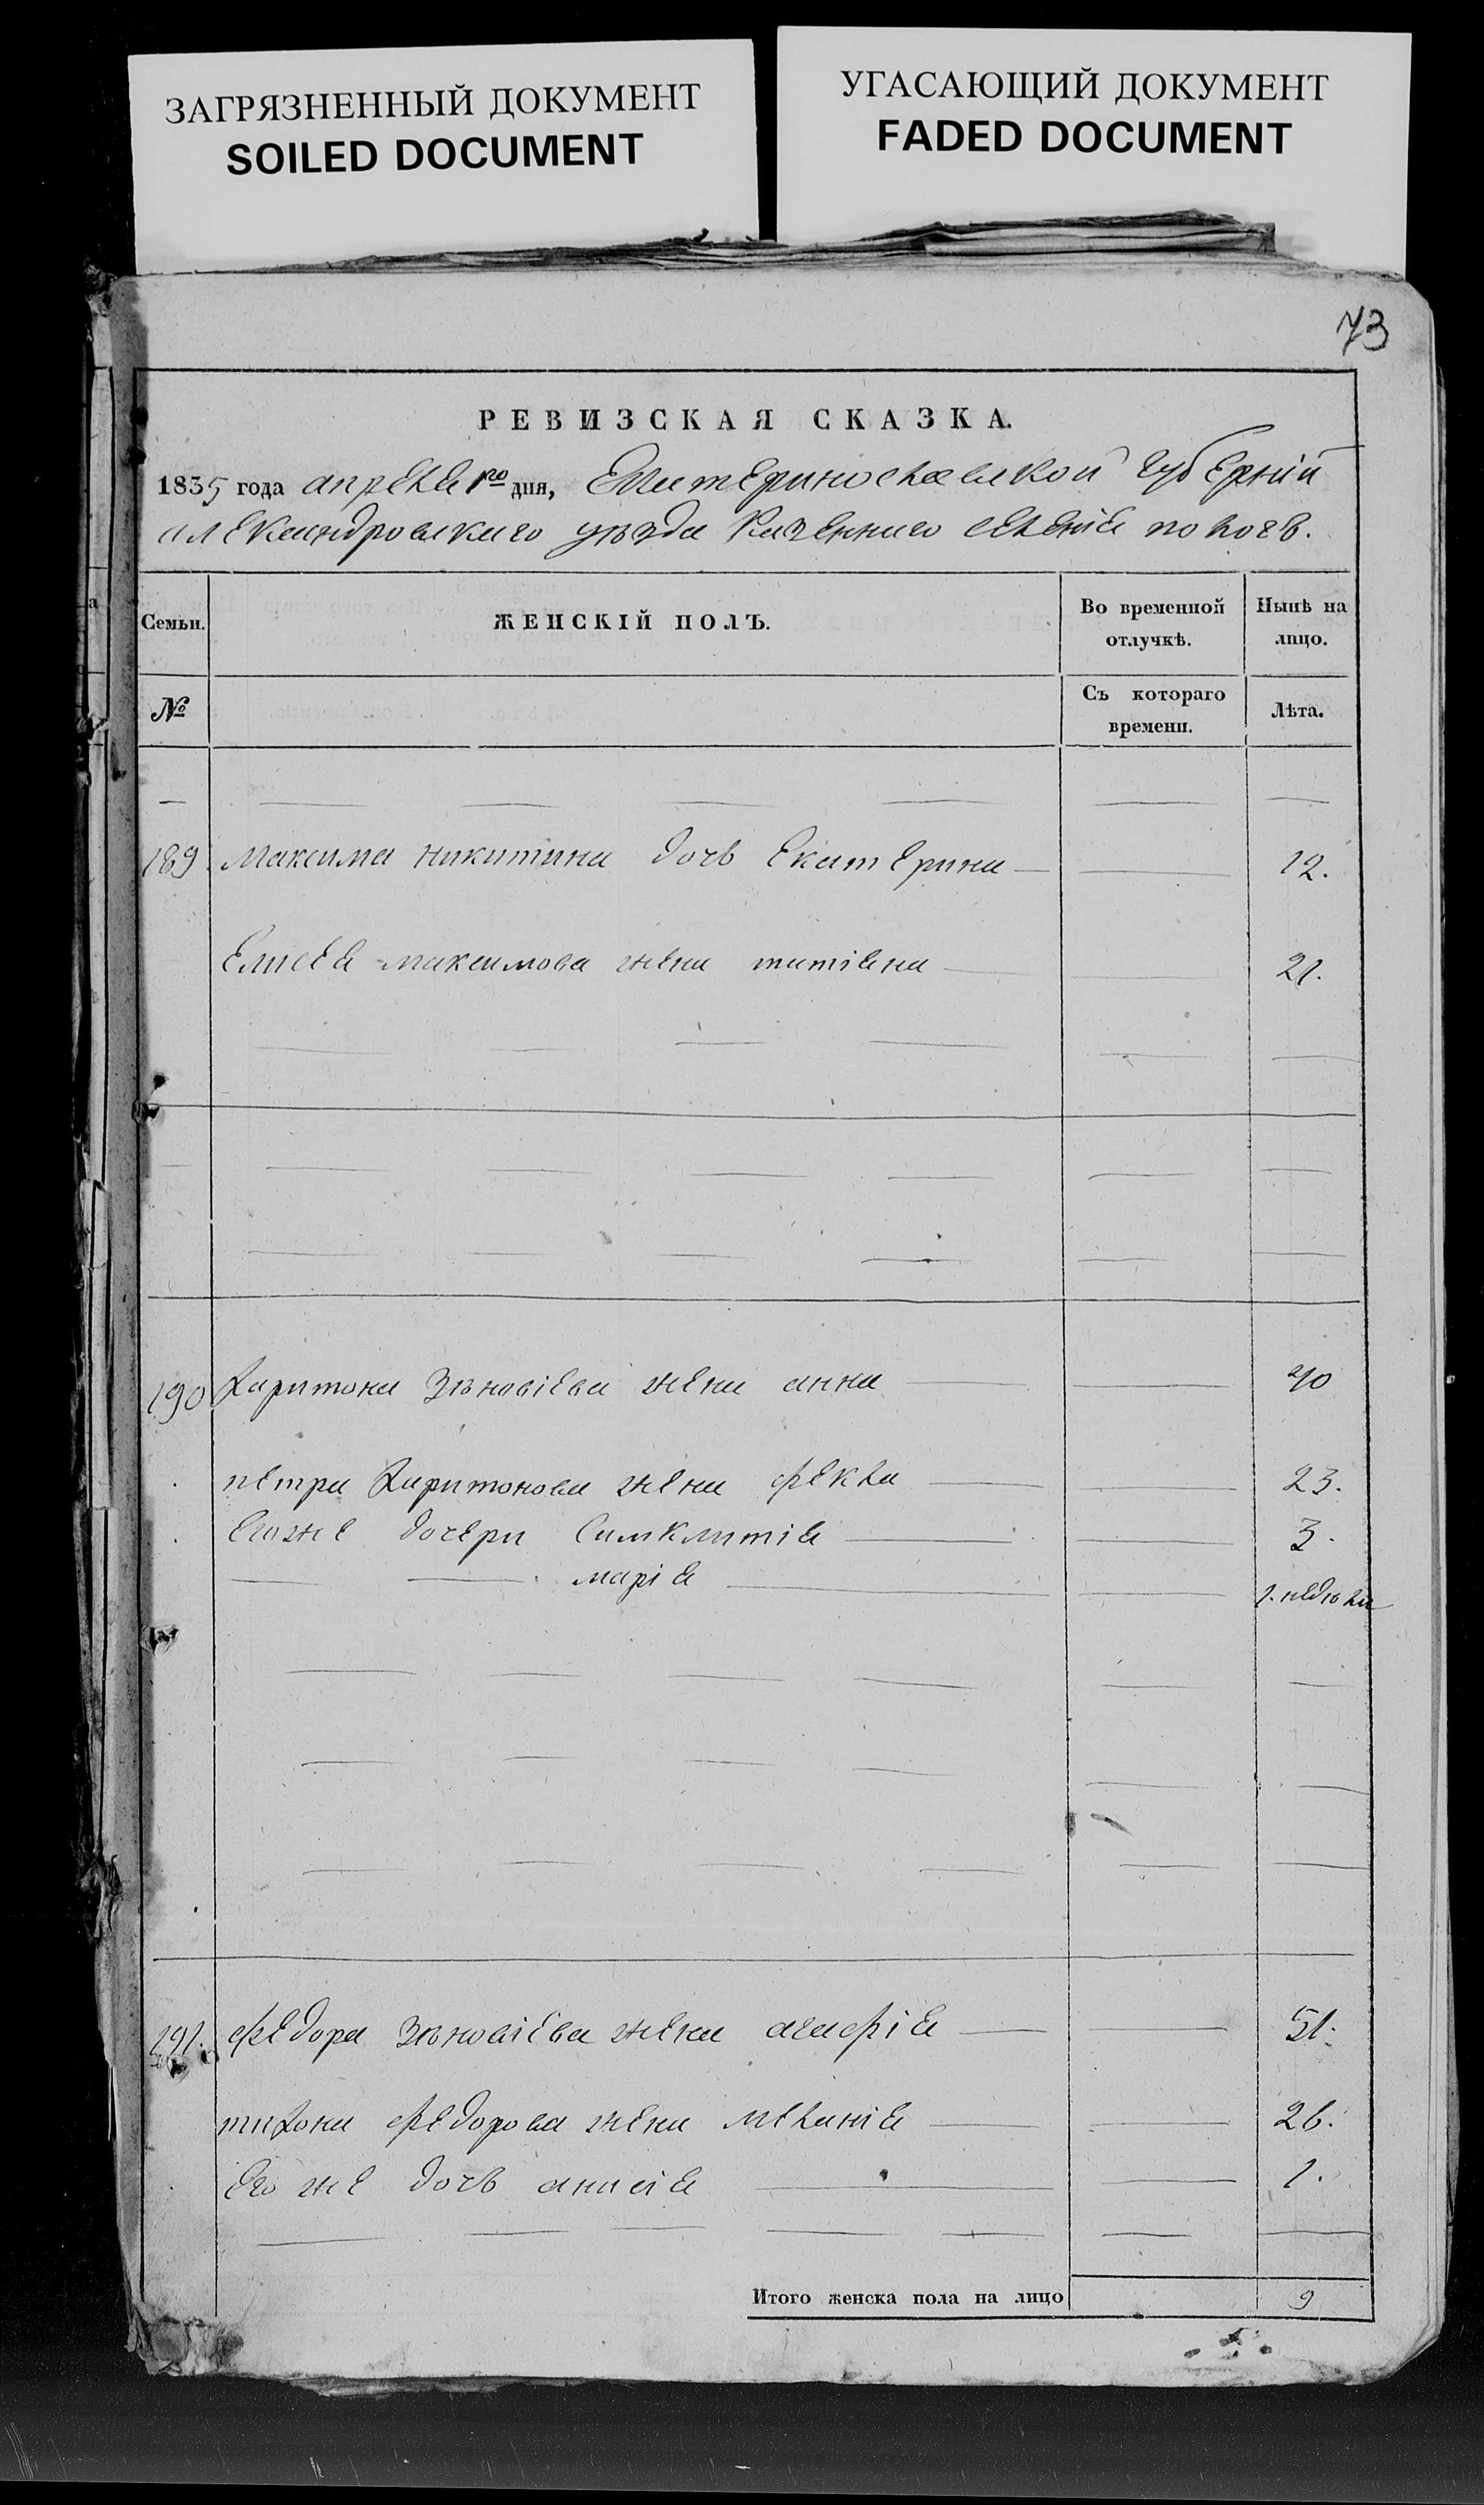 ЗАГРЯЗНЕННЫЙ ДОКУМЕНТ
SOILED DOCUMENT
УГАСАЮЩИЙ ДОКУМЕНТ
FADED DOCUMENT
73
РЕВИЗСКАЯ СКАЗКА.
1835 года апреля 1го дня, Екатеринославской губерніи
александровскаго уезда казеннаго селенія пологъ.
Семьи. ЖЕНСКІЙ ПОЛЪ. Во временной отлучкѣ. Нынѣ на лицо.
№ Съ котораго времени. Лѣта.
189 Максима никитина дочь Екатерина 12.
Елисея максимова жена татіана 21.
190 Харитона Зѣновіева жена анна 40
петра Харитонова жена фекла 23.
Егоже дочери Симклитіа 3.
маріа 1. недюля
191. федора Зѣновіева жена агафіа 51.
тихона федорова жена меланіа 26.
Его же дочь анисіа 1.
Итого женска пола на лицо 9